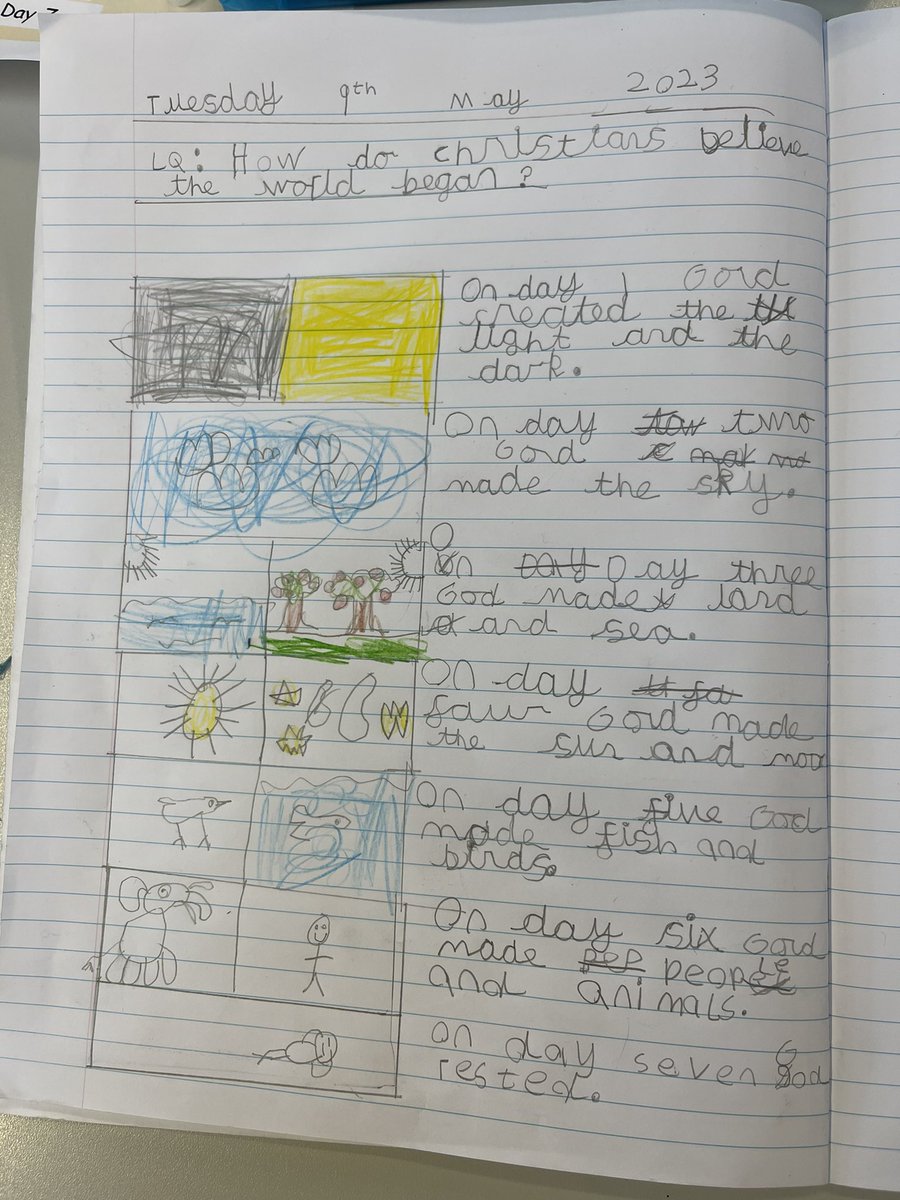 Day 7
Tuesday 9th May 2023
LQ: How do christians believe
the world began?
On day 1 Gord
created the
light and the
dark.
On day two
Gord
made the sky.
On Day three
God made land
and sea.
On day
four Gord made
the sun and moon
On day five God
made fish and
birds.
On day six Gord
made people
and animals.
On day seven God
rested.